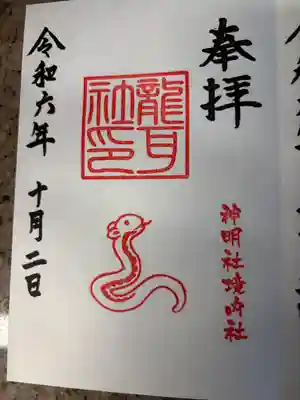 奉拝
神明社境内社
龍耳
社印
令和六年 十月二日